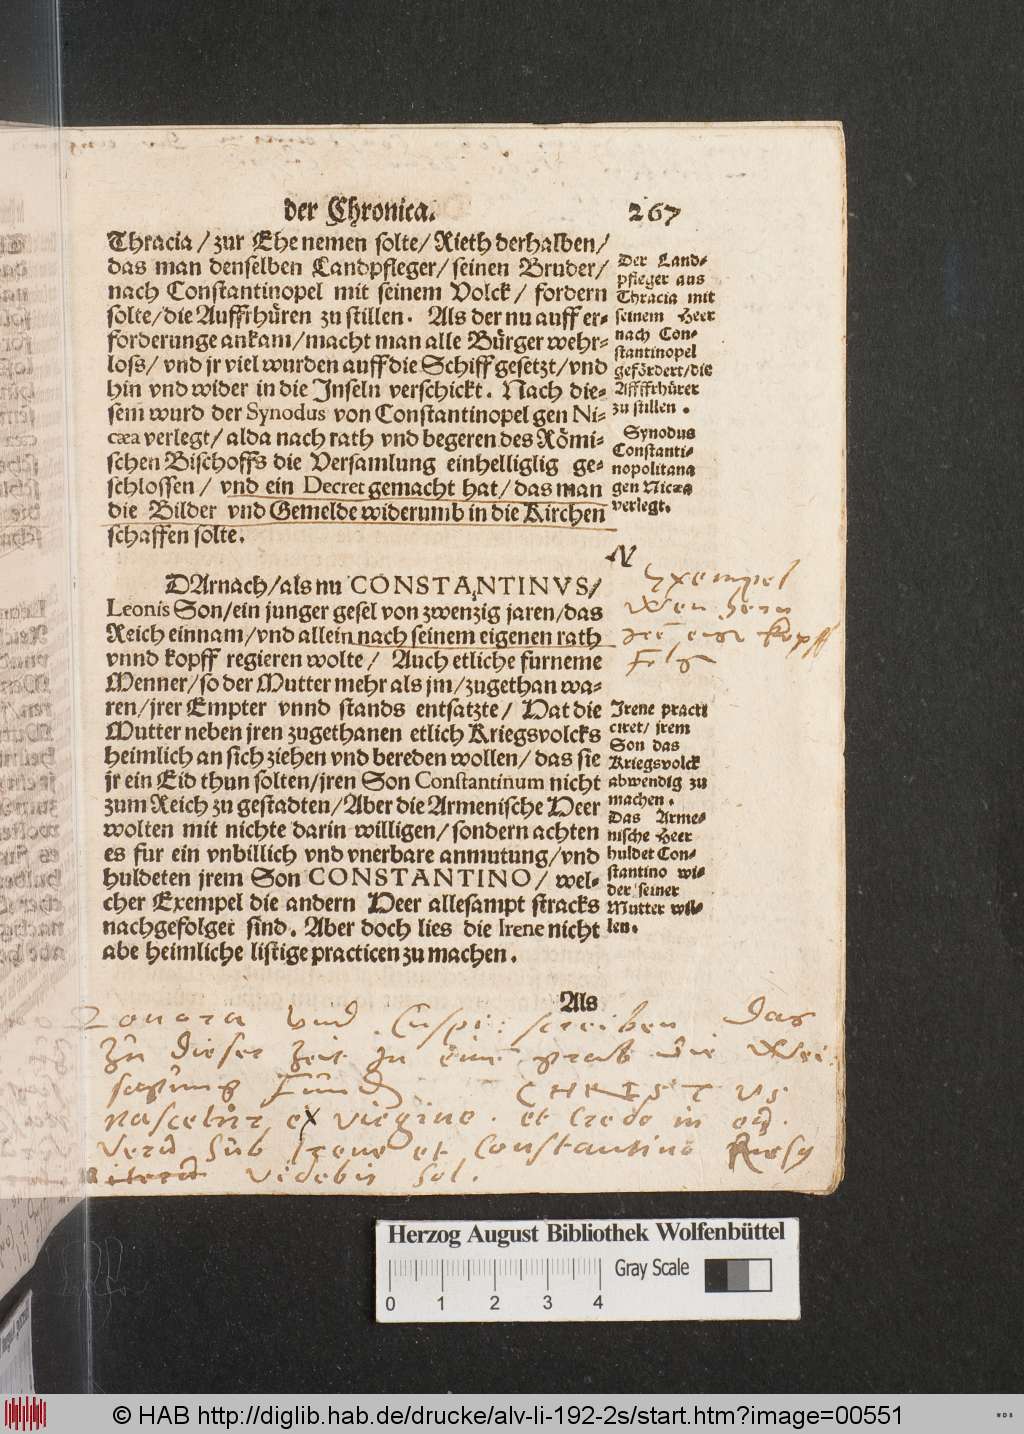 der Chronica. 267
Thracia / zur Ehe nemen solte / Rieth derhalben /
das man denselben Landpfleger / seinen Bruder /
nach Constantinopel mit seinem Volck / fordern
solte / die Auffrhüren zu stillen. Als der nu auff er-
forderunge ankam / macht man alle Bürger wehr-
loss / vnd jr viel wurden auff die Schiff gesetzt / vnd
hin vnd wider in die Inseln verschickt. Nach die-
sem wurd der Synodus von Constantinopel gen Ni-
cæa verlegt / alda nach rath vnd begeren des Römi-
schen Bischoffs die Versamlung einhelliglig ge-
schlossen / vnd ein Decret gemacht hat / das man
die Bilder vnd Gemelde widerumb in die Kirchen
schaffen solte.
Der Land-
pfleger aus
Thracia mit
seinem Heer
nach Con-
stantinopel
gefördert / die
Affffrhürer
zu stillen.
Synodus
Constanti-
nopolitana
gen Nicæa
verlegt.
DArnach / als nu CONSTANTINVS /
Leonis Son / ein junger gesel von zwenzig jaren / das
Reich einnam / vnd allein nach seinem eigenen rath
vnnd kopff regieren wolte / Auch etliche furneme
Menner / so der Mutter mehr als jm / zugethan wa-
ren / jrer Empter vnnd stands entsatzte / Hat die
Mutter neben jren zugethanen etlich Kriegsvolcks
heimlich an sich ziehen vnd bereden wollen / das sie
jr ein Eid thun solten / jren Son Constantinum nicht
zum Reich zu gestadten / Aber die Armenische Heer
wolten mit nichte darin willigen / sondern achten
es fur ein vnbillich vnd vnerbare anmutung / vnd
huldeten jrem Son CONSTANTINO / wel-
cher Exempel die andern Heer allesampt stracks
nachgefolget sind. Aber doch lies die Irene nicht
abe heimliche listige practicen zu machen.
N
Exempel
Wen Hern
kopff
Folgn
Irene practi
ciret / jrem
Son das
Kriegsvolck
abwendig zu
machen.
Das Arme-
nische Heer
huldet Con-
stantino wi-
der seiner
Mutter wil-
len.
Als
Zonara vnd Cuspi: schreiben Das
Zu dieser Zeit In eine grab die Wei
sagung Fund CHRISTVS
nascetur ex virgine. et Credo in eū.
Verū Sub Irene et Constantino
iterū videbis Sol.
Herzog August Bibliothek Wolfenbüttel
Gray Scale
0 1 2 3 4
© HAB http://diglib.hab.de/drucke/alv-li-192-2s/start.htm?image=00551